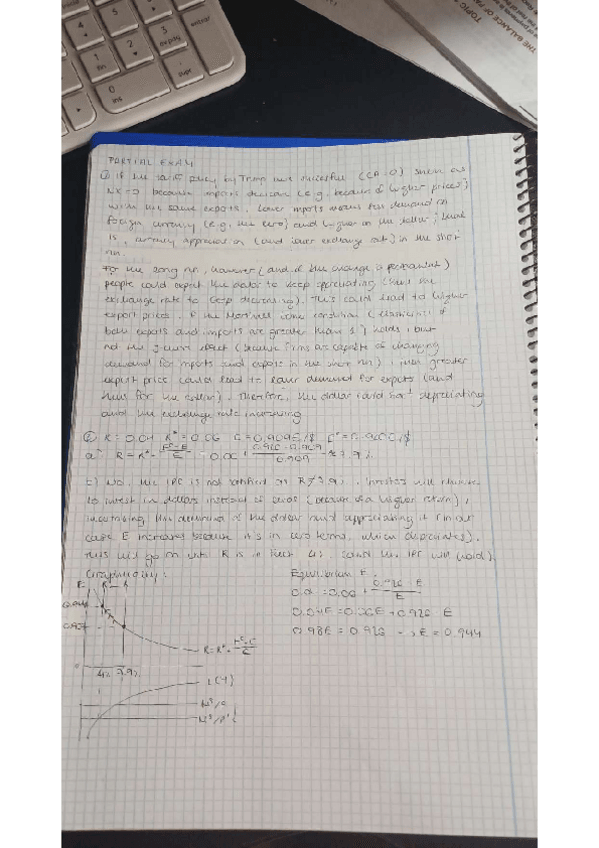 TOPIC
THE BALANCE OF PA
enter
PARTIAL EXAM
① If the tariff policy by Trump were successful (CA=0) such as
NX=0 because imports decrease (e.g. because of higher prices)
with the same exports. Lower imports means less demand on
foreign currency (e.g. the euro) and higher on the dollar, that
is, currency appreciation (and lower exchange rate) in the short
run.
For the long run, however (and if the change is permanent)
people could expect the dollar to keep appreciating (and the
exchange rate to keep decreasing). This could lead to higher
export prices. If the Marshall condition (elasticities of
both exports and imports are greater than 1) holds, but
not the J curve effect (because firms are capable of changing
demand for imports and exports in the short run), then greater
export price could lead to lower demand for exports (and
thus for the dollar). Therefore, the dollar could start depreciating
and the exchange rate increasing
② R=0.04 R*=0.06 E=0.909€/$
a) R=R*+ Eᵉ-E / E 0.06 + 0.909 7.9%
b) No, the IPC is not satisfied as R≠7.9%. Investors will
to invest in dollars instead of euros (because of a higher return),
increasing the demand of the dollar and appreciating it (in our
case E increases because it's in euro terms, which depreciates).
This will go on until R is in fact 4% (and the IPC will hold).
Graphically:
Equilibrium E:
0.04=0.06+ 0.926-E / E
0.04E=0.06E+0.926-E
0.98E=0.926 → E=0.944
E
0.944
0.909
R=R*+ Eᵉ-E / E
4% 7.9%
L(Y)
Mˢ/P
Mˢ/P'